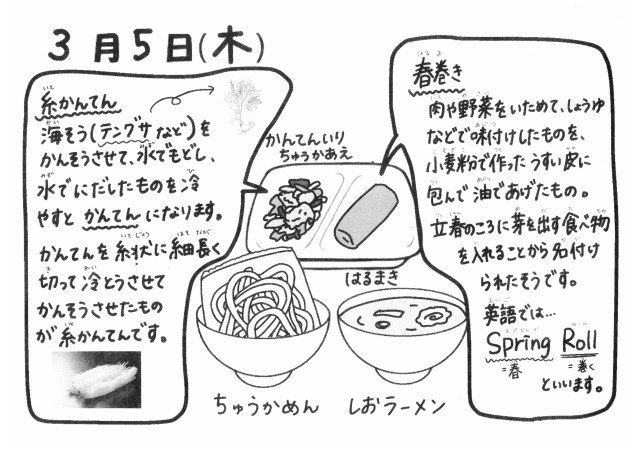 3月5日(木)
糸かんてん
海そう(テングサなど)を
かんそうさせて、水でもどし、
水でにだしたものを冷
やすと かんてんになります。
かんてんを糸状に細長く
切って冷とうさせて
かんそうさせたもの
が糸かんてんです。
かんてんいり
ちゅうかあえ
はるまき
ちゅうかめん
しおラーメン
春巻き
肉や野菜をいためて、しょうゆ
などで味付けしたものを、
小麦粉で作ったうすい皮に
包んで油であげたもの。
立春のころに芽を出す食べ物
を入れることから名付け
られたそうです。
英語では…
Spring Roll
=春 =巻く
といいます。